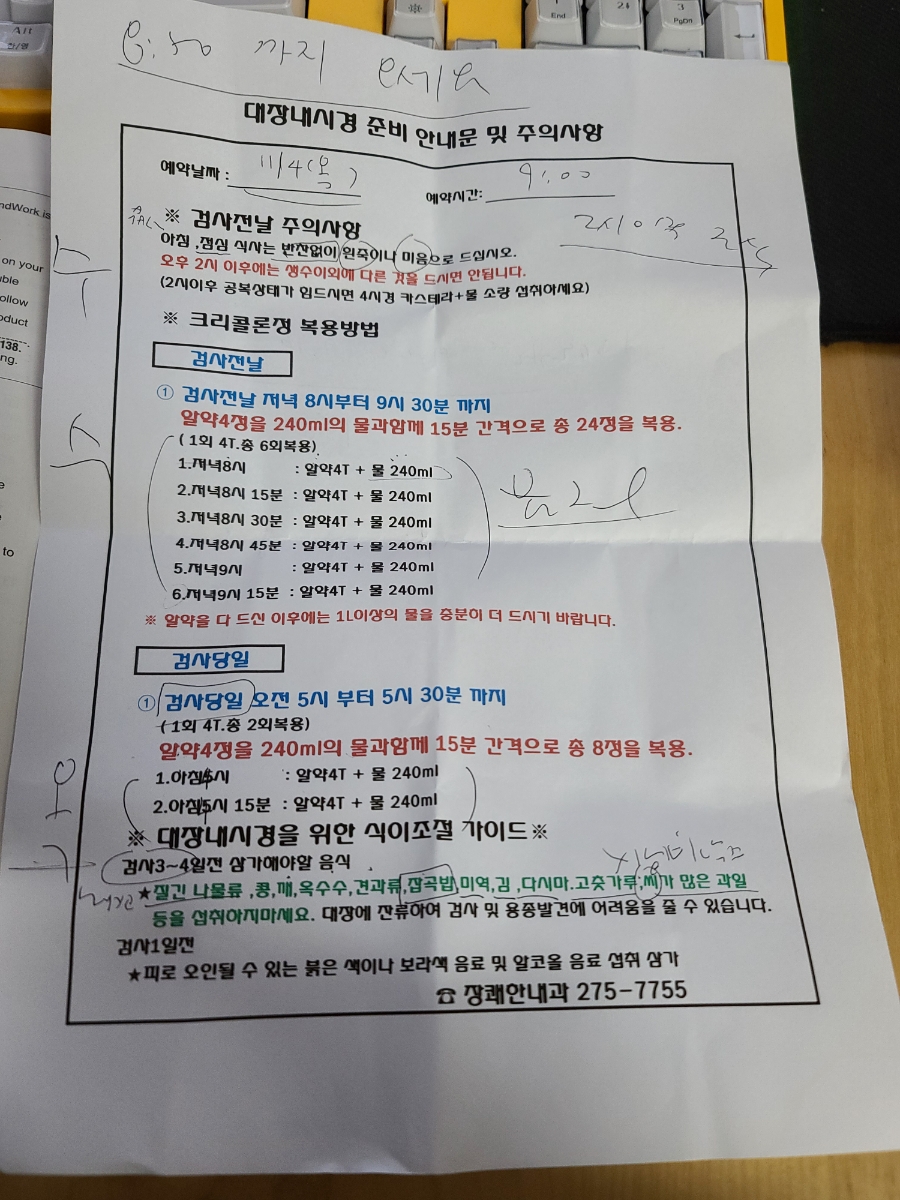 까지 오세요
대장내시경 준비 안내문 및 주의사항
예약날짜 : 11/4(목)
예약시간: 9:00
※ 검사전날 주의사항
2시이후 금식
아침 ,점심 식사는 반찬없이 흰죽이나 미음으로 드십시오.
오후 2시 이후에는 생수이외에 다른 것을 드시면 안됩니다.
(2시이후 공복상태가 힘드시면 4시경 카스테라+물 소량 섭취하세요)
※ 크리콜론정 복용방법
검사전날
① 검사전날 저녁 8시부터 9시 30분 까지
알약4정을 240ml의 물과함께 15분 간격으로 총 24정을 복용.
( 1회 4T.총 6회복용)
1.저녁8시 : 알약4T + 물 240ml
2.저녁8시 15분 : 알약4T + 물 240ml
물 2l
3.저녁8시 30분 : 알약4T + 물 240ml
4.저녁8시 45분 : 알약4T + 물 240ml
5.저녁9시 : 알약4T + 물 240ml
6.저녁9시 15분 : 알약4T + 물 240ml
※ 알약을 다 드신 이후에는 1L이상의 물을 충분히 더 드시기 바랍니다.
검사당일
① 검사당일 오전 5시 부터 5시 30분 까지
( 1회 4T.총 2회복용)
알약4정을 240ml의 물과함께 15분 간격으로 총 8정을 복용.
1.아침5시 : 알약4T + 물 240ml
2.아침5시 15분 : 알약4T + 물 240ml
※ 대장내시경을 위한 식이조절 가이드※
검사3~4일전 삼가해야할 음식
★질긴 나물류 ,콩,깨,옥수수,견과류,잡곡밥,미역,김 ,다시마.고춧가루,씨가 많은 과일
등을 섭취하지마세요. 대장에 잔류하여 검사 및 용종발견에 어려움을 줄 수 있습니다.
검사1일전
★피로 오인될 수 있는 붉은 색이나 보라색 음료 및 알코올 음료 섭취 삼가
☎ 장쾌한내과 275-7755
ndWork.is
on your
ible
ollow
oduct
138.
ng.
e
to
End
PgDn